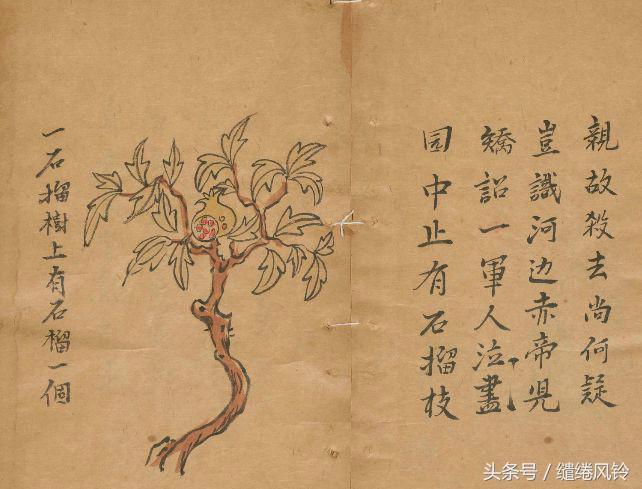 親故殺去尚何疑
豈識河边赤帝児
矯詔一軍人泣盡
园中止有石榴枝
一石榴樹上有石榴一個
头条号/缱绻风铃